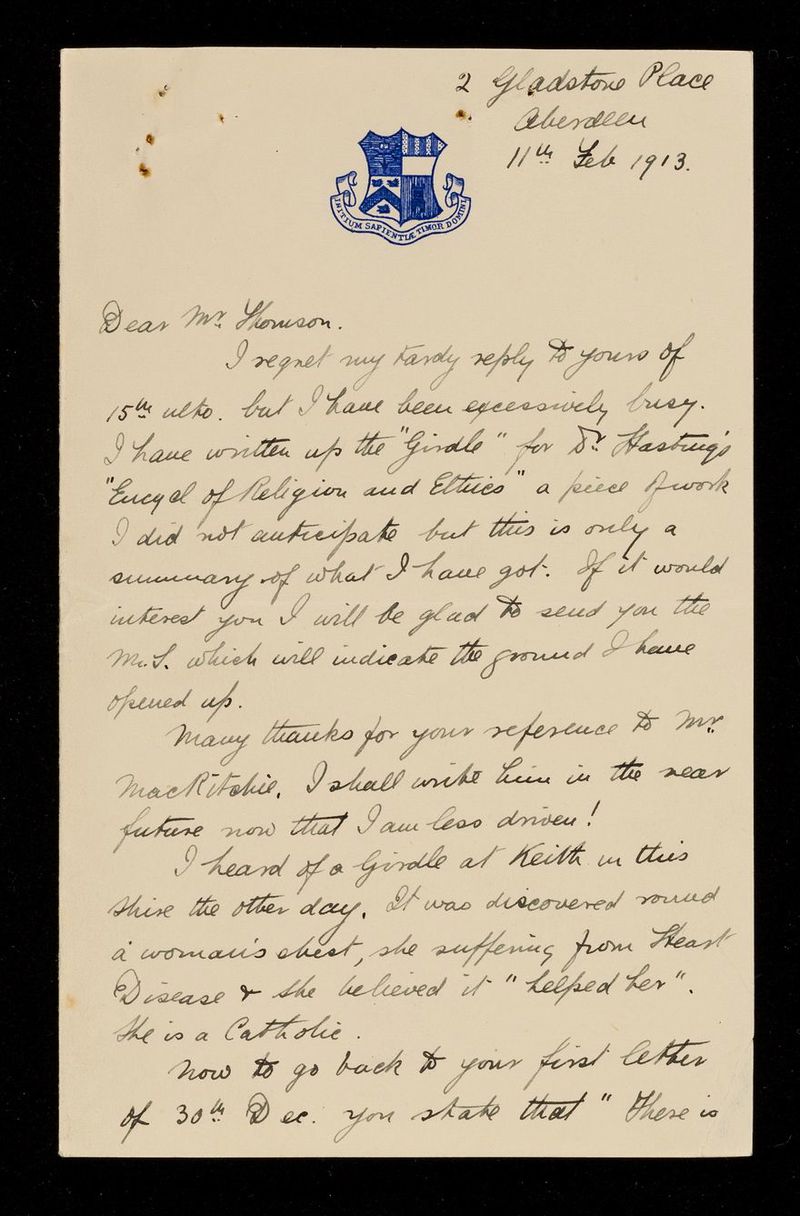 2 Gladstone Place
Aberdeen
11th Feb 1913.
INITIUM SAPIENTIÆ TIMOR DOMINI
Dear Mr. Thomson.
I regret my tardy reply to yours of
15th ulto. but I have been excessively busy.
I have written up the "Girdle" for Dr. Hasting's
"Encycl of Religion and Ethics" a piece of work
I did not anticipate but this is only a
summary of what I have got. If it would
interest you I will be glad to send you the
M.S. which will indicate the ground I have
opened up.
Many thanks for your reference to Mr.
MacRitchie. I shall write him in the near
future now that I am less driven!
I heard of a Girdle at Keith in this
shire the other day. It was discovered round
a woman's chest, she suffering from Heart
Disease & she believed it "helped her".
She is a Catholic.
Now to go back to your first letter
of 30th Dec. you state that "There is